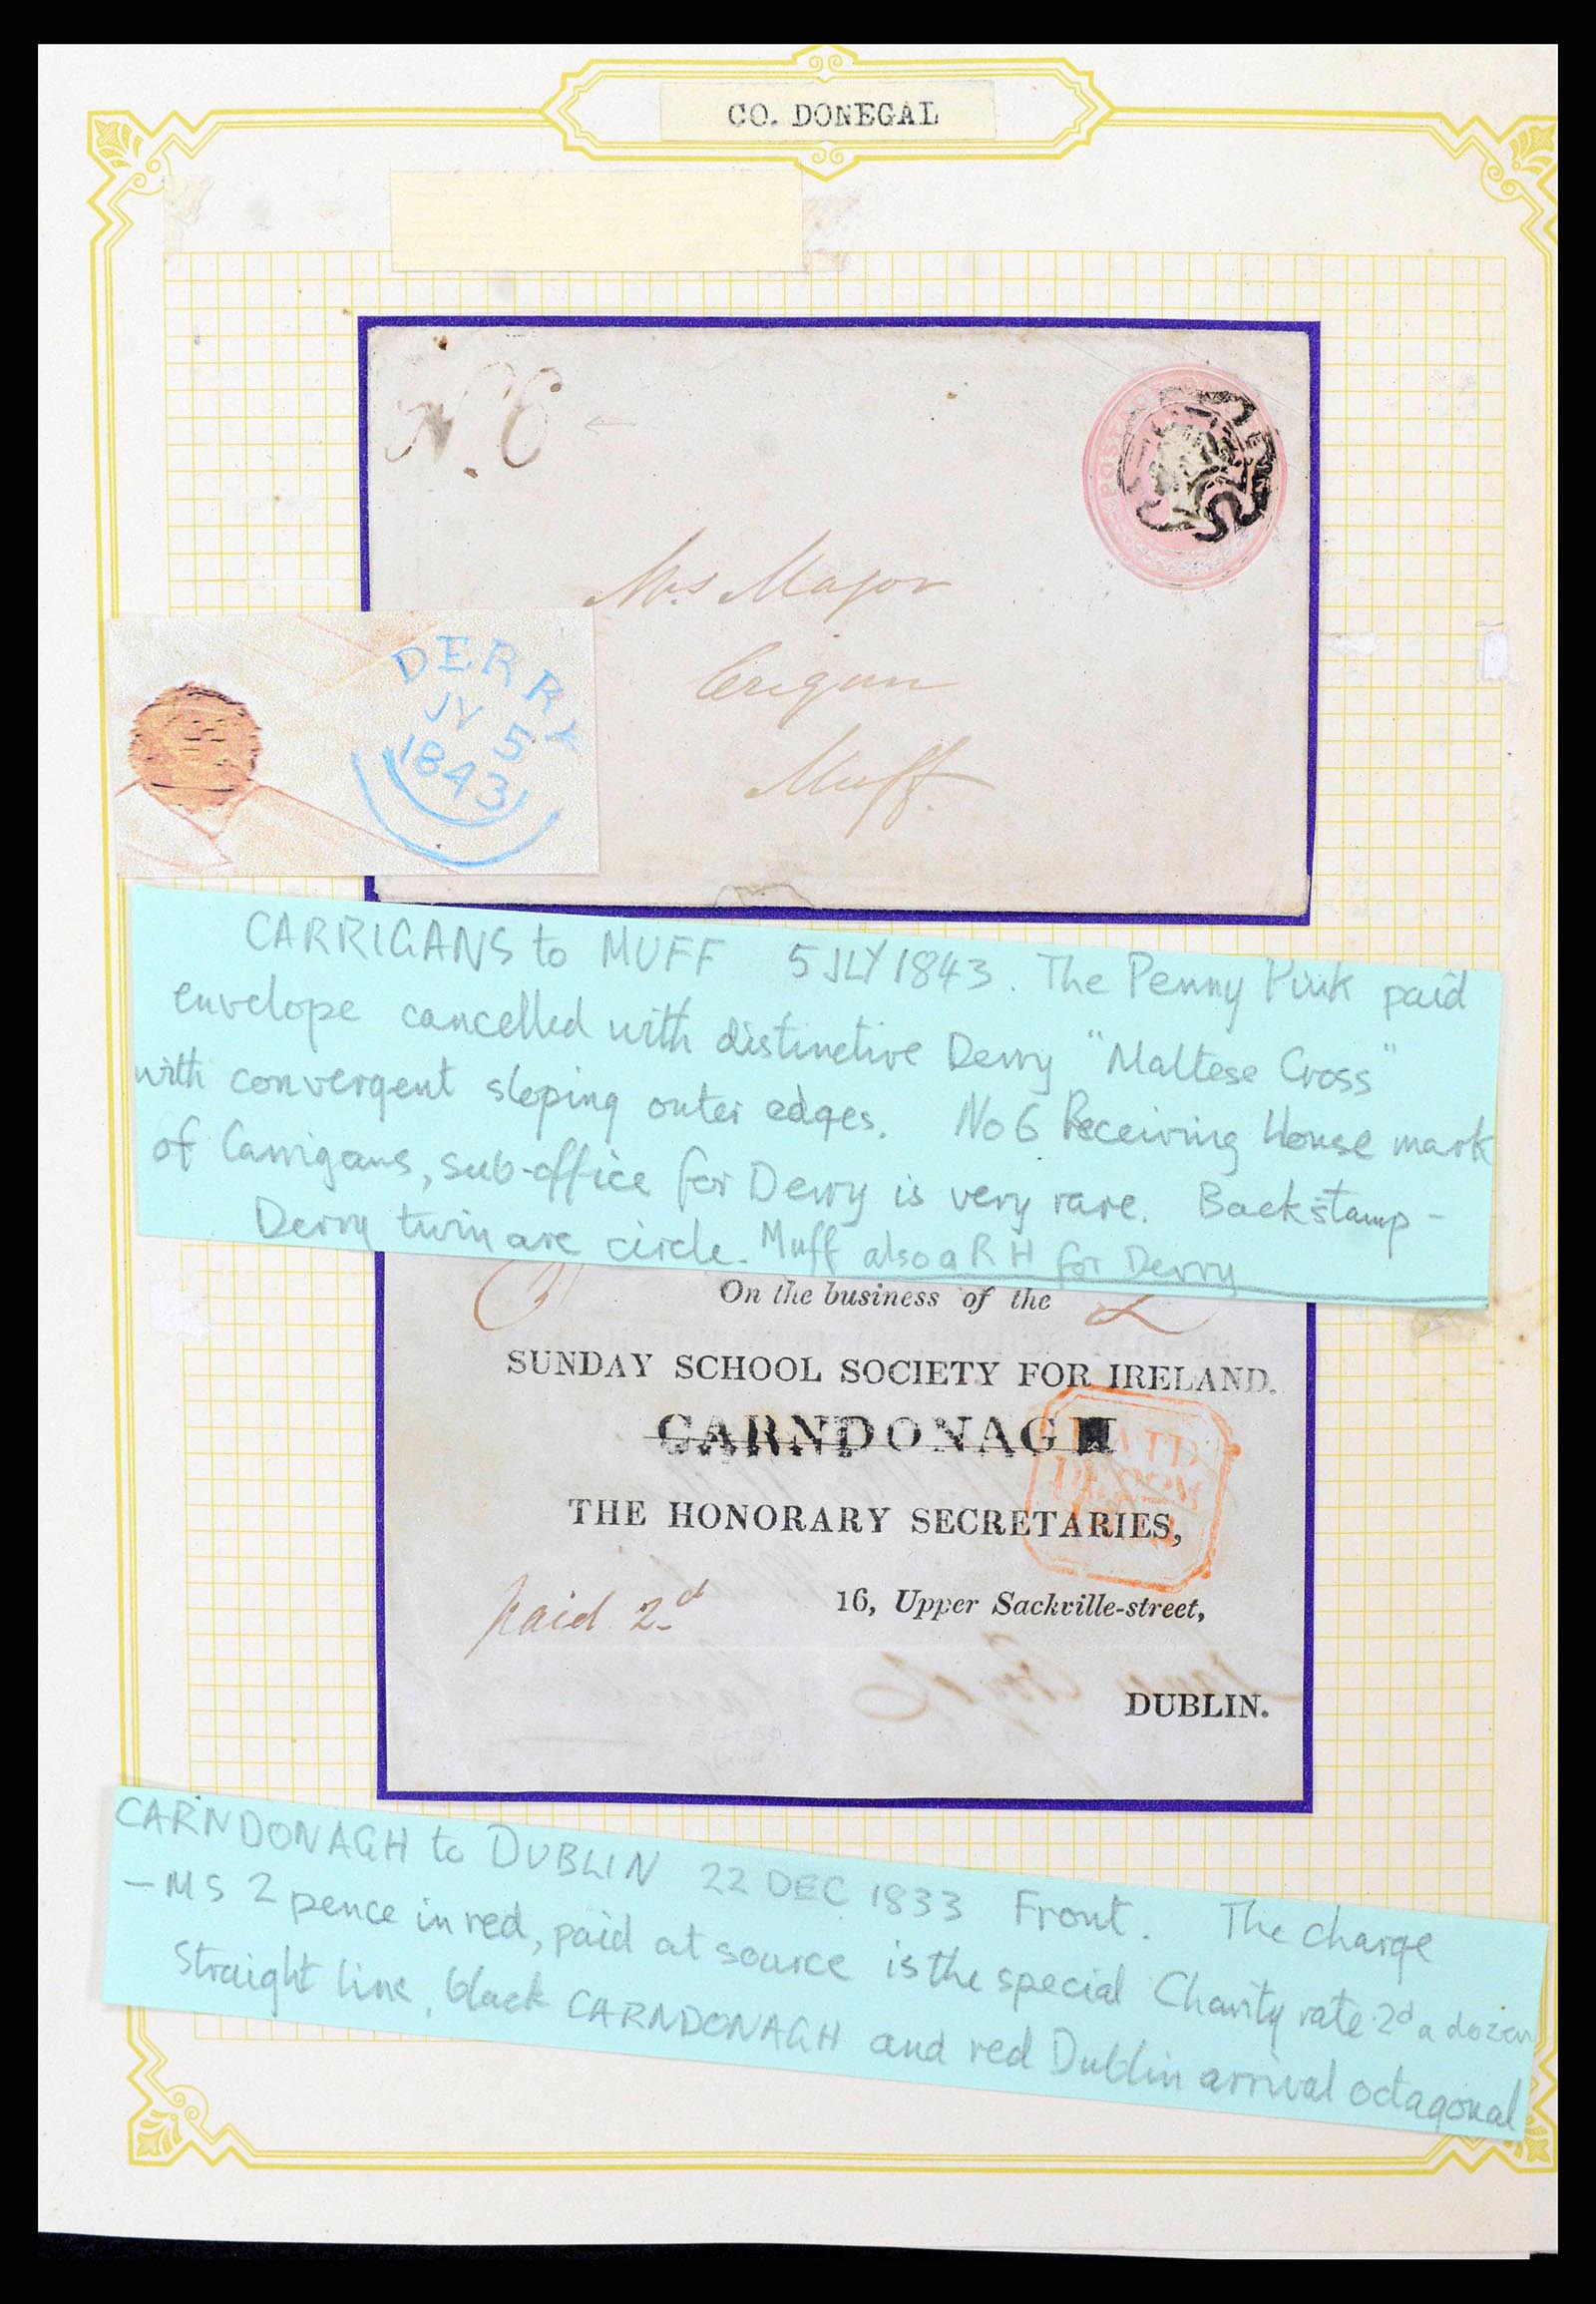 CO. DONEGAL
No. 6
POSTAGE
Mrs Major
Crigan
Muff
DERRY
JY 5
1843
CARRIGANS to MUFF 5 JLY 1843. The Penny Pink paid
envelope cancelled with distinctive Derry "Maltese Cross"
with convergent sloping outer edges. No 6 Receiving House mark
of Carrigans, sub-office for Derry is very rare. Backstamp -
Derry twin arc circle. Muff also a R H for Derry
On the business of the
SUNDAY SCHOOL SOCIETY FOR IRELAND.
CARNDONAGH
THE HONORARY SECRETARIES,
paid 2d
16, Upper Sackville-street,
DUBLIN.
CARNDONAGH to DUBLIN 22 DEC 1833 Front. The charge
- MS 2 pence in red, paid at source is the special Charity rate 2d a dozen
Straight line, black CARNDONAGH and red Dublin arrival octagonal